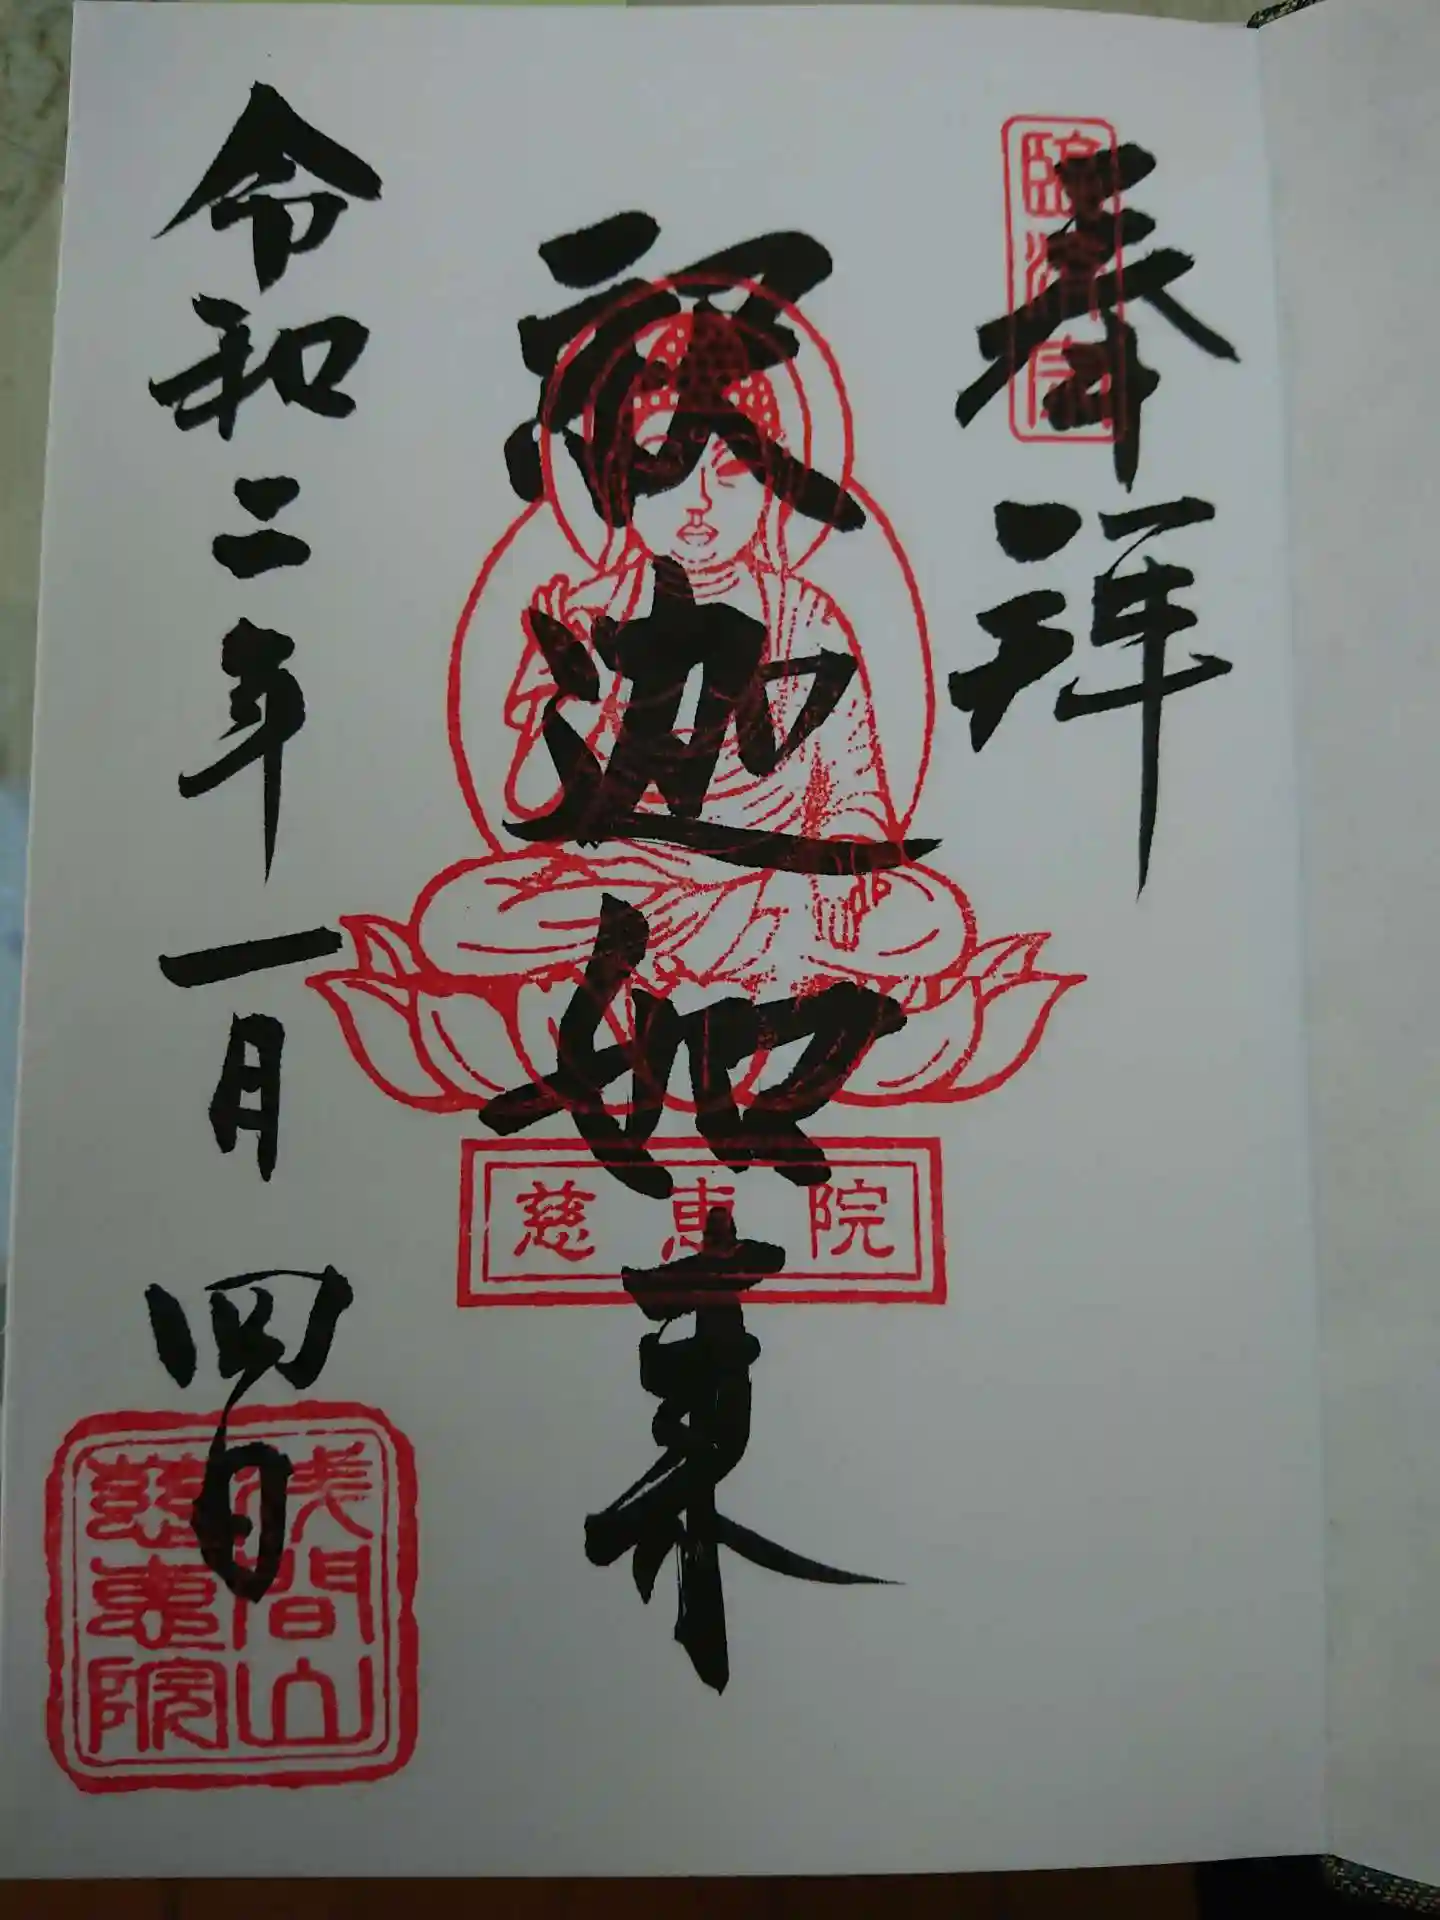 奉拝
臨済宗
釈迦如来
慈恵院
令和二年一月四日
浅間山
慈恵院